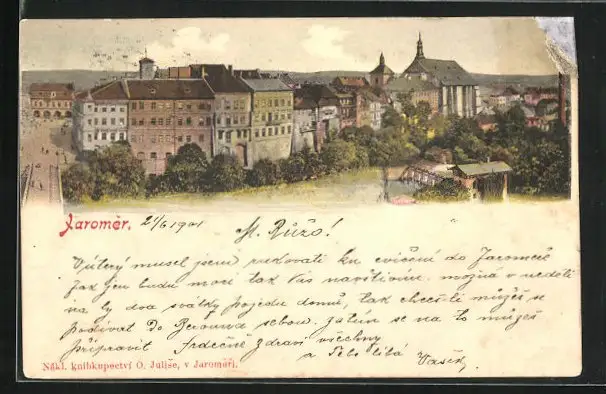 Jaroměr. 21/6 1901
M. Růžo!
Úterý musel jsem rukovati ku cvičení do Jaroměře
jak jen budu moci tak Vás navštívím. možná v neděli
na ty dva svátky pojedu domů, tak chceš-li můžeš se
podívat do Berouna sebou. zatím se na to můžeš
připravit Srdečně zdraví všechny
a Tebe líbá
Vašek
Nákl. knihkupectví O. Juliše, v Jaroměři.